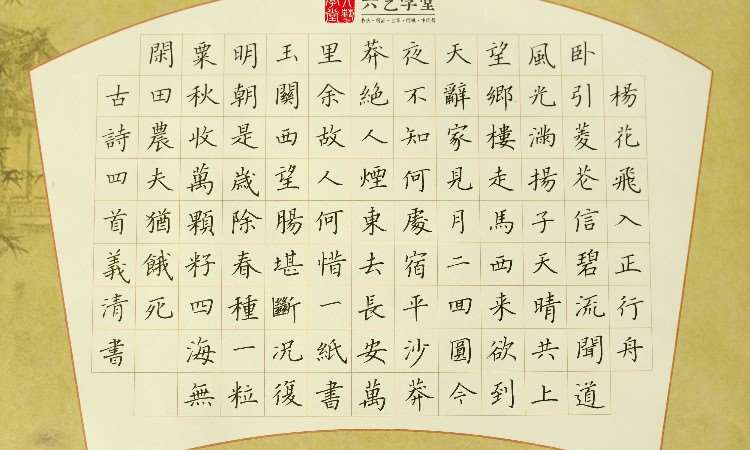 六艺学堂
楊花飛入正行舟
卧引菱花信碧流聞道
風光滿揚子天晴共上
望鄉樓走馬西来欲到
天辭家見月二囬圓今
夜不知何處宿平沙莽
莽絶人煙東去長安萬
里余故人何惜一紙書
玉關西望腸堪斷况復
明朝是歲除春種一粒
粟秋收萬顆籽四海無
閑田農夫猶餓死
古詩四首義清書